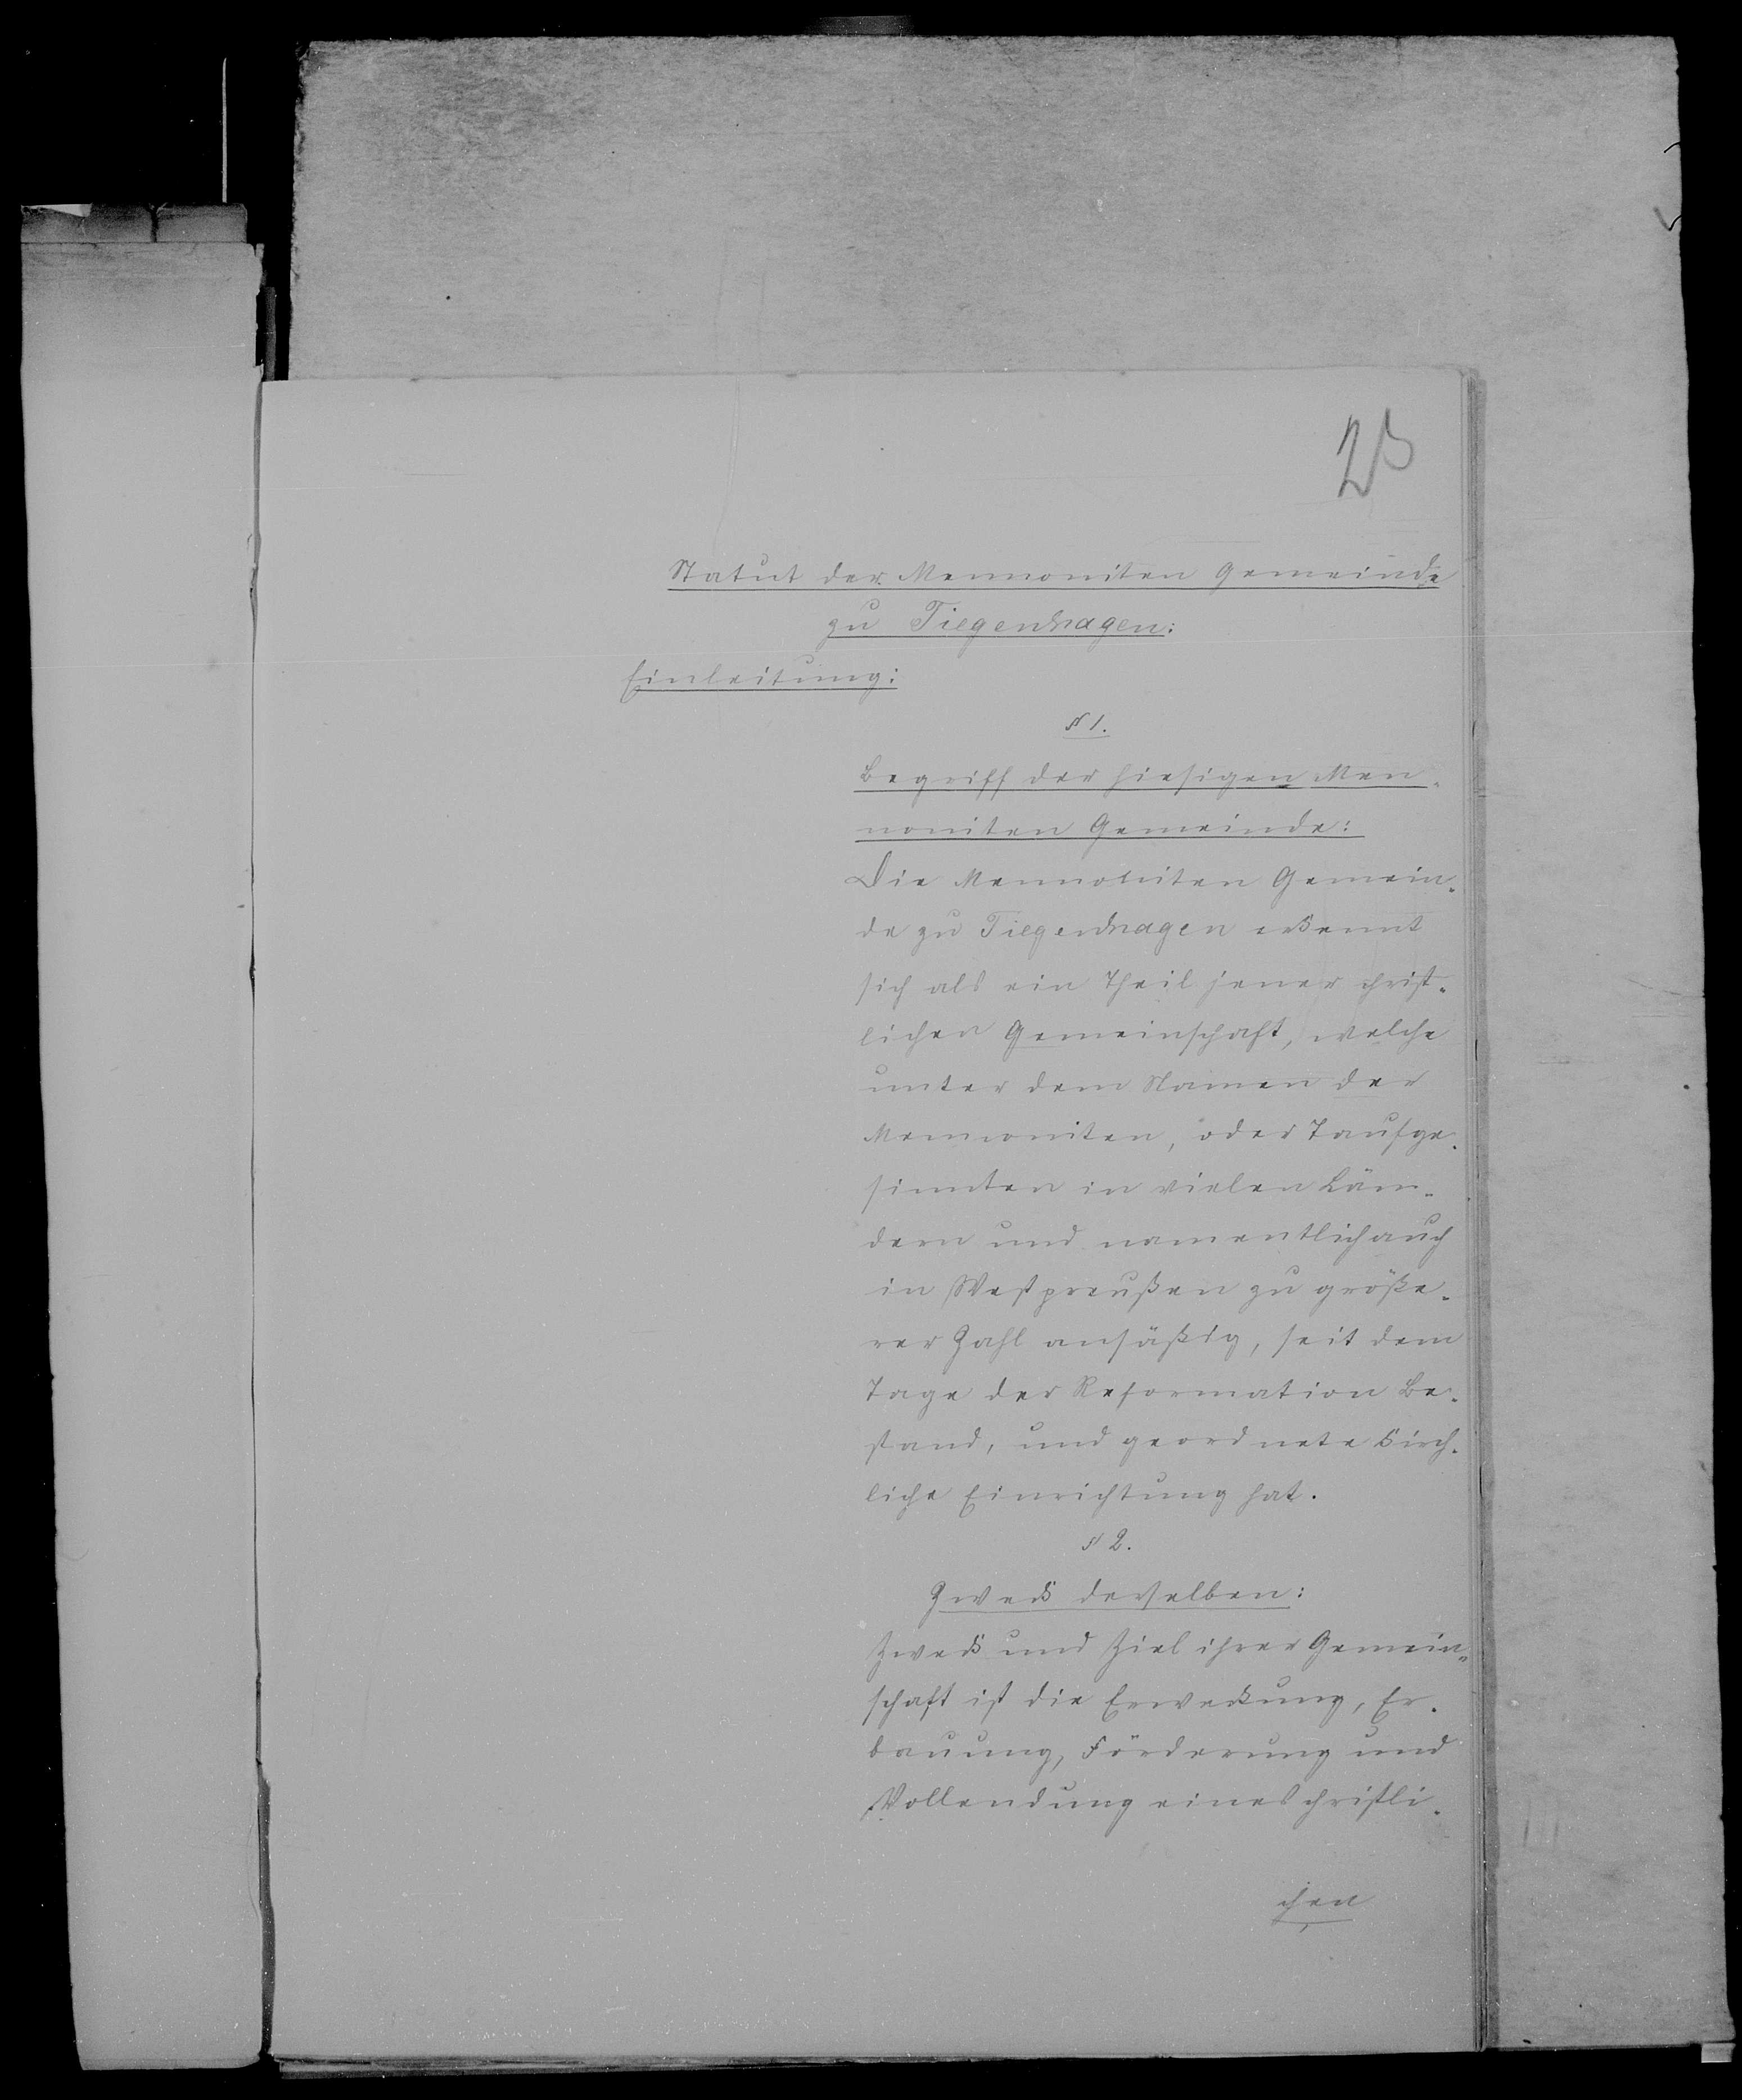 25
Statut der Mennoniten Gemeinde
zu Tiegenhagen:
Einleitung:
§ 1.
Begriff der hiesigen Men-
noniten Gemeinde:
Die Mennoniten Gemein-
de zu Tiegenhagen erkennt
sich als ein Theil jener christ-
lichen Gemeinschaft, welche
unter dem Namen der
Mennoniten, oder Taufge-
sinnten in vielen Län-
dern und namentlich auch
in Westpreußen zu größe-
rer Zahl ansäßig, seit dem
Tage der Reformation Be-
stand, und geordnete kirch-
liche Einrichtung hat.
§ 2.
Zweck derselben:
Zweck und Ziel ihrer Gemein-
schaft ist die Erweckung, Er-
bauung, Förderung und
Vollendung eines christli-
chen